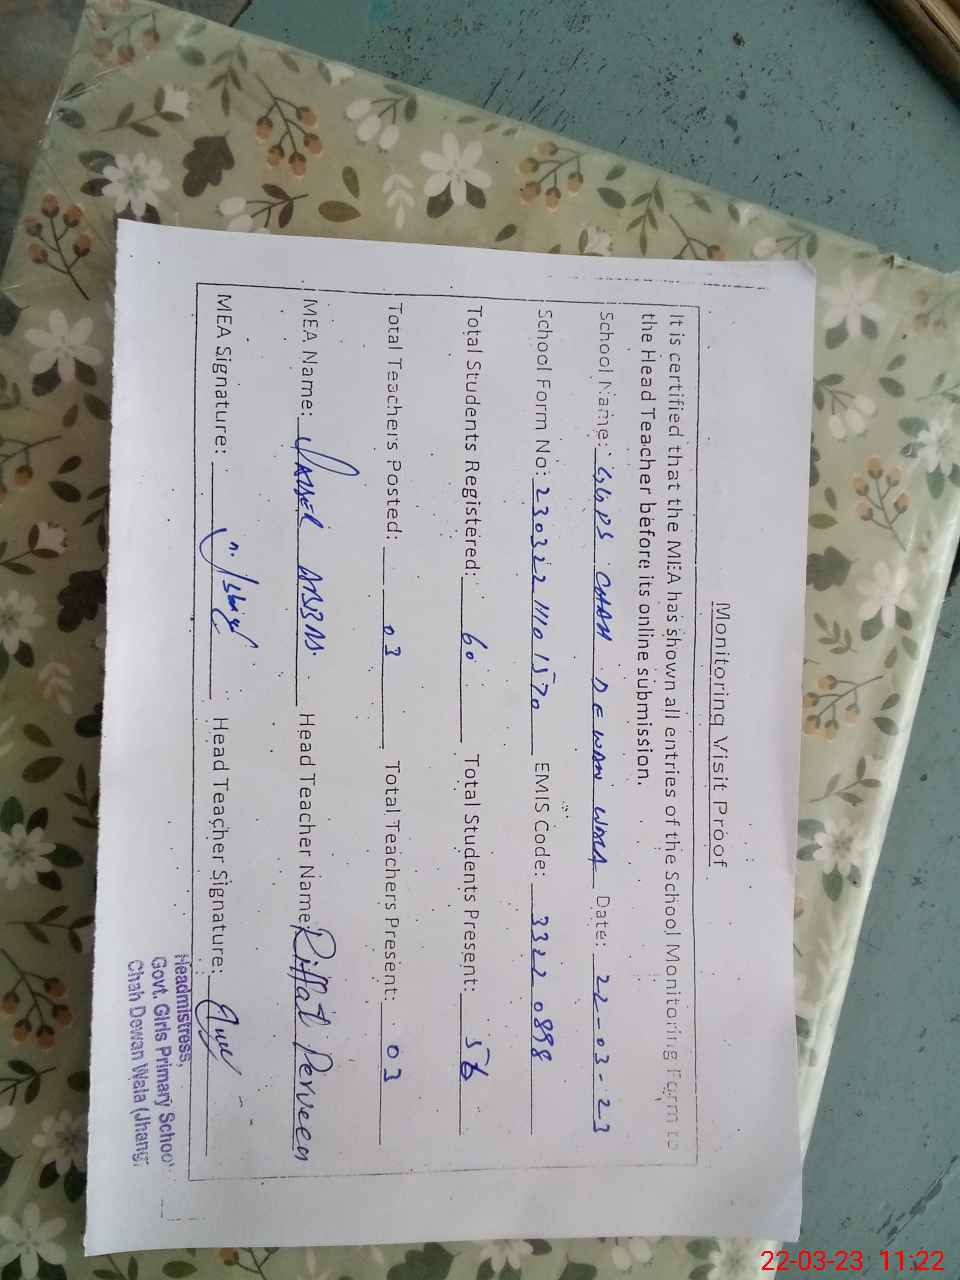 Monitoring Visit Proof
It is certified that the MEA has shown all entries of the School Monitoring Form to
the Head Teacher before its online submission.
School Name: GGPS CHAH DEWAN WALA Date: 22-03-23
School Form No: 230322 1110 1570 EMIS Code: 3322 0898
Total Students Registered: 60 Total Students Present: 56
Total Teachers Posted: 03 Total Teachers Present: 03
MEA Name: ABBAS Head Teacher Name: Riffat Perveen
MEA Signature: Head Teacher Signature:
Headmistress,
Govt. Girls Primary School
Chah Dewan Wala (Jhang)
22-03-23 11:22